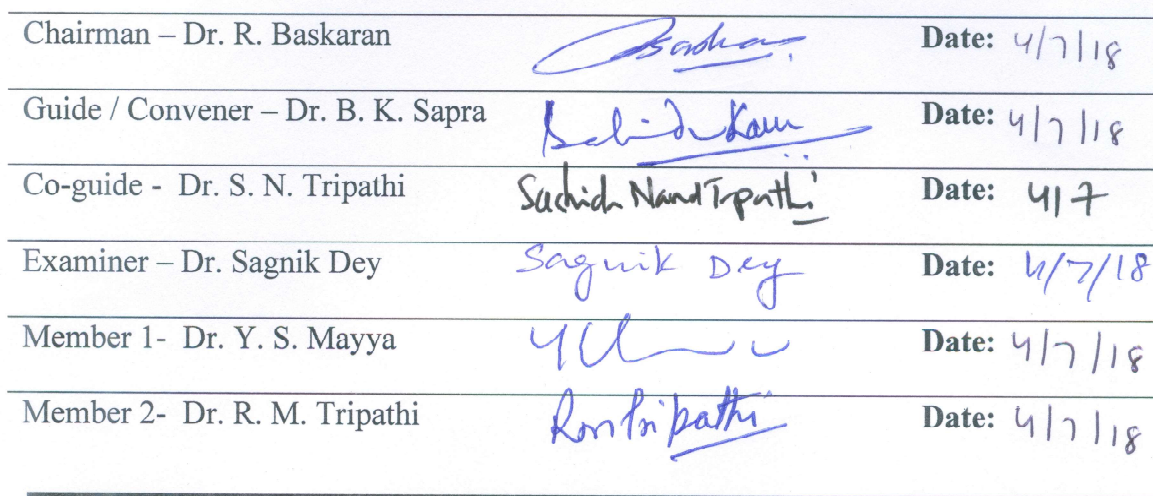 Chairman – Dr. R. Baskaran Baskaran Date: 4/7/18
Guide / Convener – Dr. B. K. Sapra Date: 4/7/18
Co-guide - Dr. S. N. Tripathi Sachchida Nand Tripathi Date: 4/7
Examiner – Dr. Sagnik Dey Sagnik Dey Date: 4/7/18
Member 1- Dr. Y. S. Mayya Date: 4/7/18
Member 2- Dr. R. M. Tripathi Rm Tripathi Date: 4/7/18